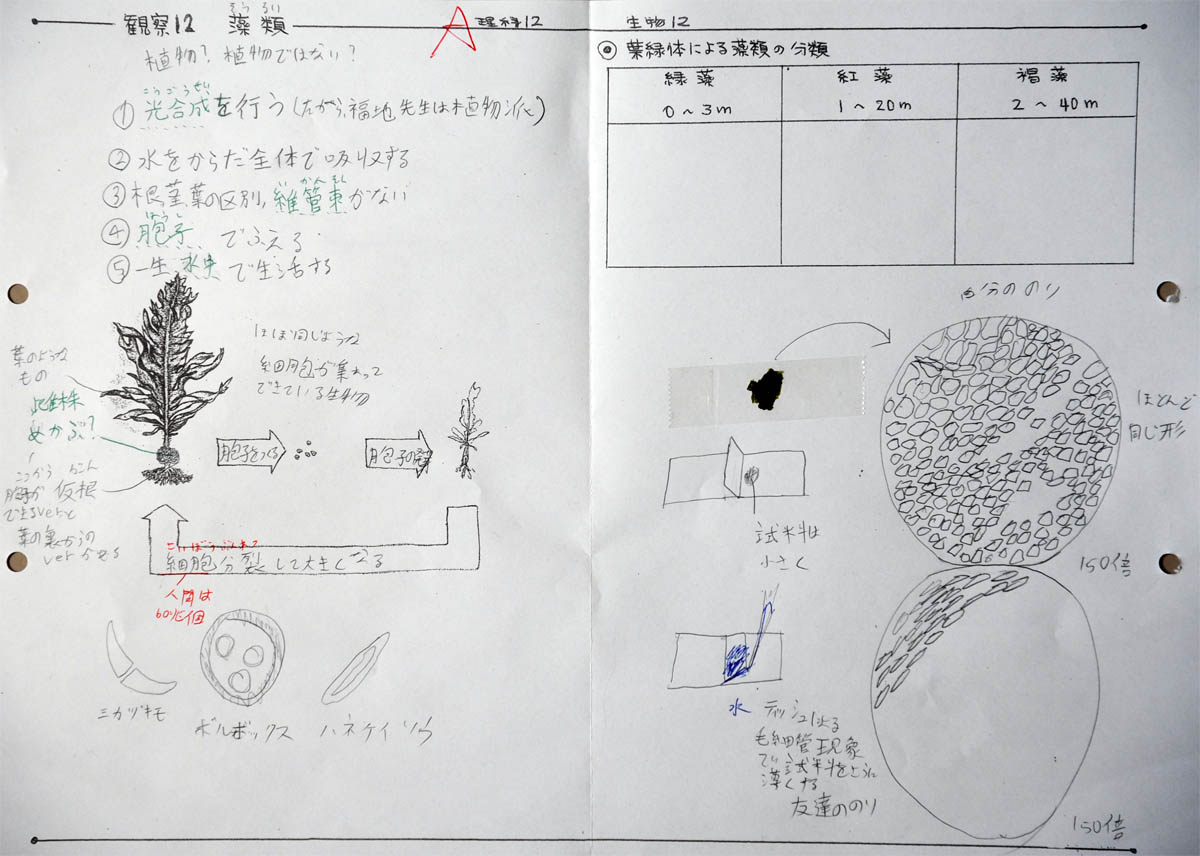 観察12 藻類
そうるい
A
理科12
植物? 植物ではない?
こうごうせい
① 光合成を行う(だから、福地先生は植物派)
② 水をからだ全体で吸収する
かんそく
③ 根茎葉の区別,維管束がない
ほうし
④ 胞子 でふえる
⑤ 一生 水中 で生活する
ほぼ同じような
細胞が集まって
できている生物
葉のような
もの
雌株
めかぶ?
ここから
胞子が
できるverと
葉の裏からの
verがある
かこん
仮根
胞子をつくる
胞子の発芽
さいぼうぶんれつ
細胞分裂して大きくなる
人間は
60兆個
ミカヅキモ
ボルボックス
ハネケイソウ
生物12
◎ 葉緑体による藻類の分類
緑藻 紅藻 褐藻
0~3m 1~20m 2~40m
自分ののり
ほとんど
同じ形
150倍
試料は
小さく
水
ティッシュによる
毛細管現象
で試料をさらに
薄くする
友達ののり
150倍